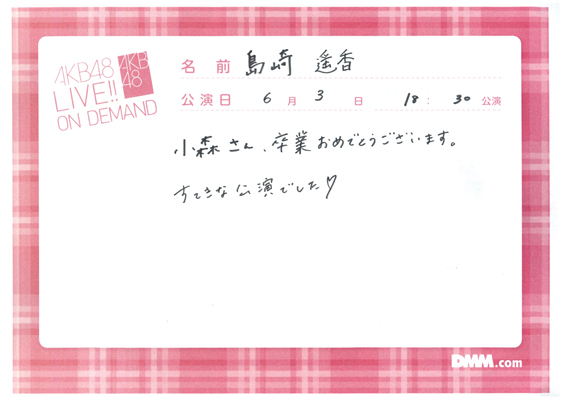 AKB48
LIVE!!
ON DEMAND
AKB
48
名前 島崎 遥香
公演日 6月3日 18:30公演
小森さん、卒業おめでとうございます。
すてきな公演でした♡
DMM.com